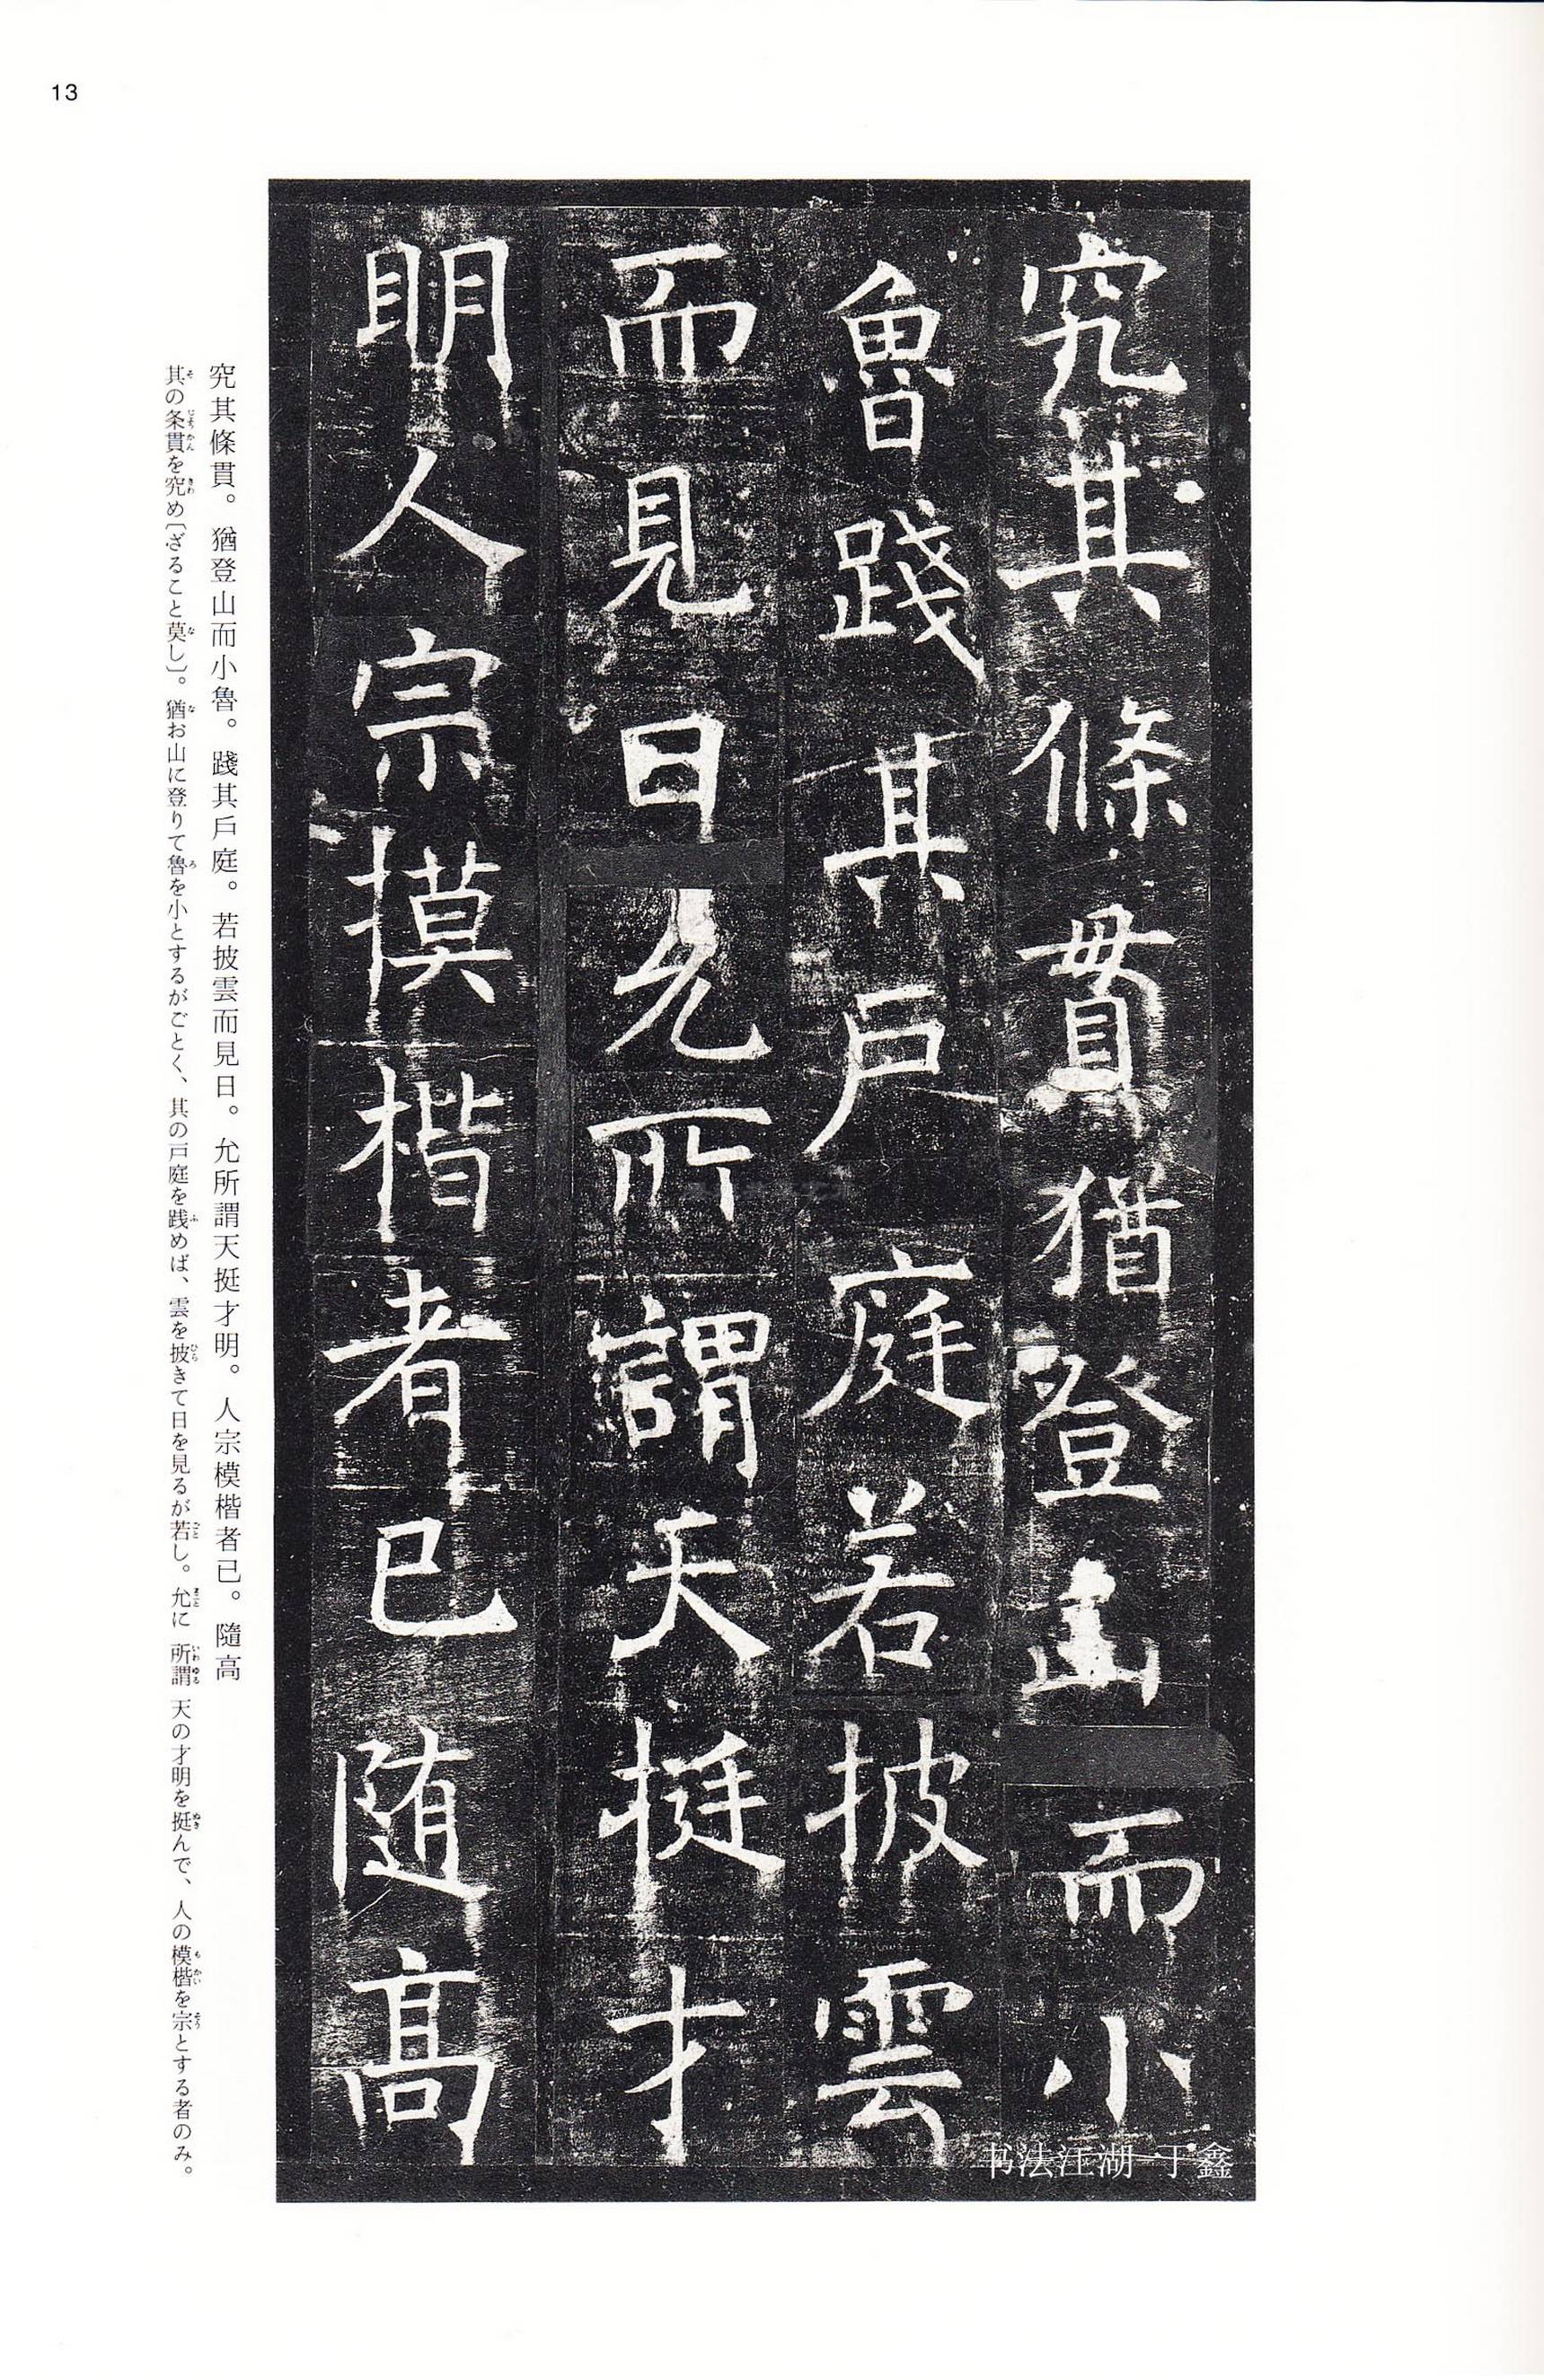 13
究其條貫猶登山而小
魯踐其戶庭若披雲
而見日允所謂天挺才
明人宗摸楷者已随高
究其條貫。猶登山而小魯。踐其戶庭。若披雲而見日。允所謂天挺才明。人宗模楷者已。隨高
其の条貫を究め〔ざること莫し〕。猶お山に登りて魯を小とするがごとく、其の戸庭を践めば、雲を披きて日を見るが若し。允に所謂天の才明を挺んで、人の模楷を宗とする者のみ。
书法江湖 于鑫